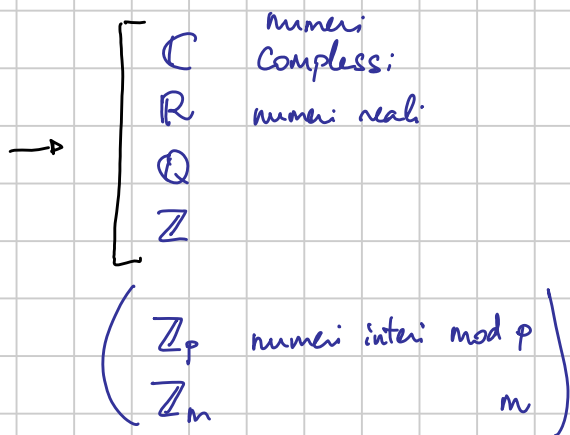 numeri
ℂ complessi
ℝ numeri reali
ℚ
ℤ
ℤp numeri interi mod p
ℤm m